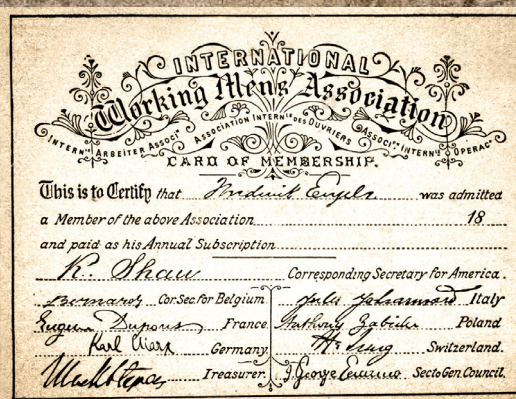 INTERNATIONAL
Working Mens Association
INTERN. ARBEITER ASSOC. ASSOCIATION INTERN.LE DES OUVRIERS ASSOC. INTERN. OPERAI
CARD OF MEMBERSHIP.
This is to Certify that Frederick Engels was admitted
a Member of the above Association 18
and paid as his Annual Subscription
R. Shaw Corresponding Secretary for America.
Bernard Cor Sec. for Belgium. Italy
Eugène Dupont France. Anthony Zabicki Poland
Karl Marx Germany. H. Jung Switzerland.
Treasurer. J. George Eccarius Sec to Gen. Council.